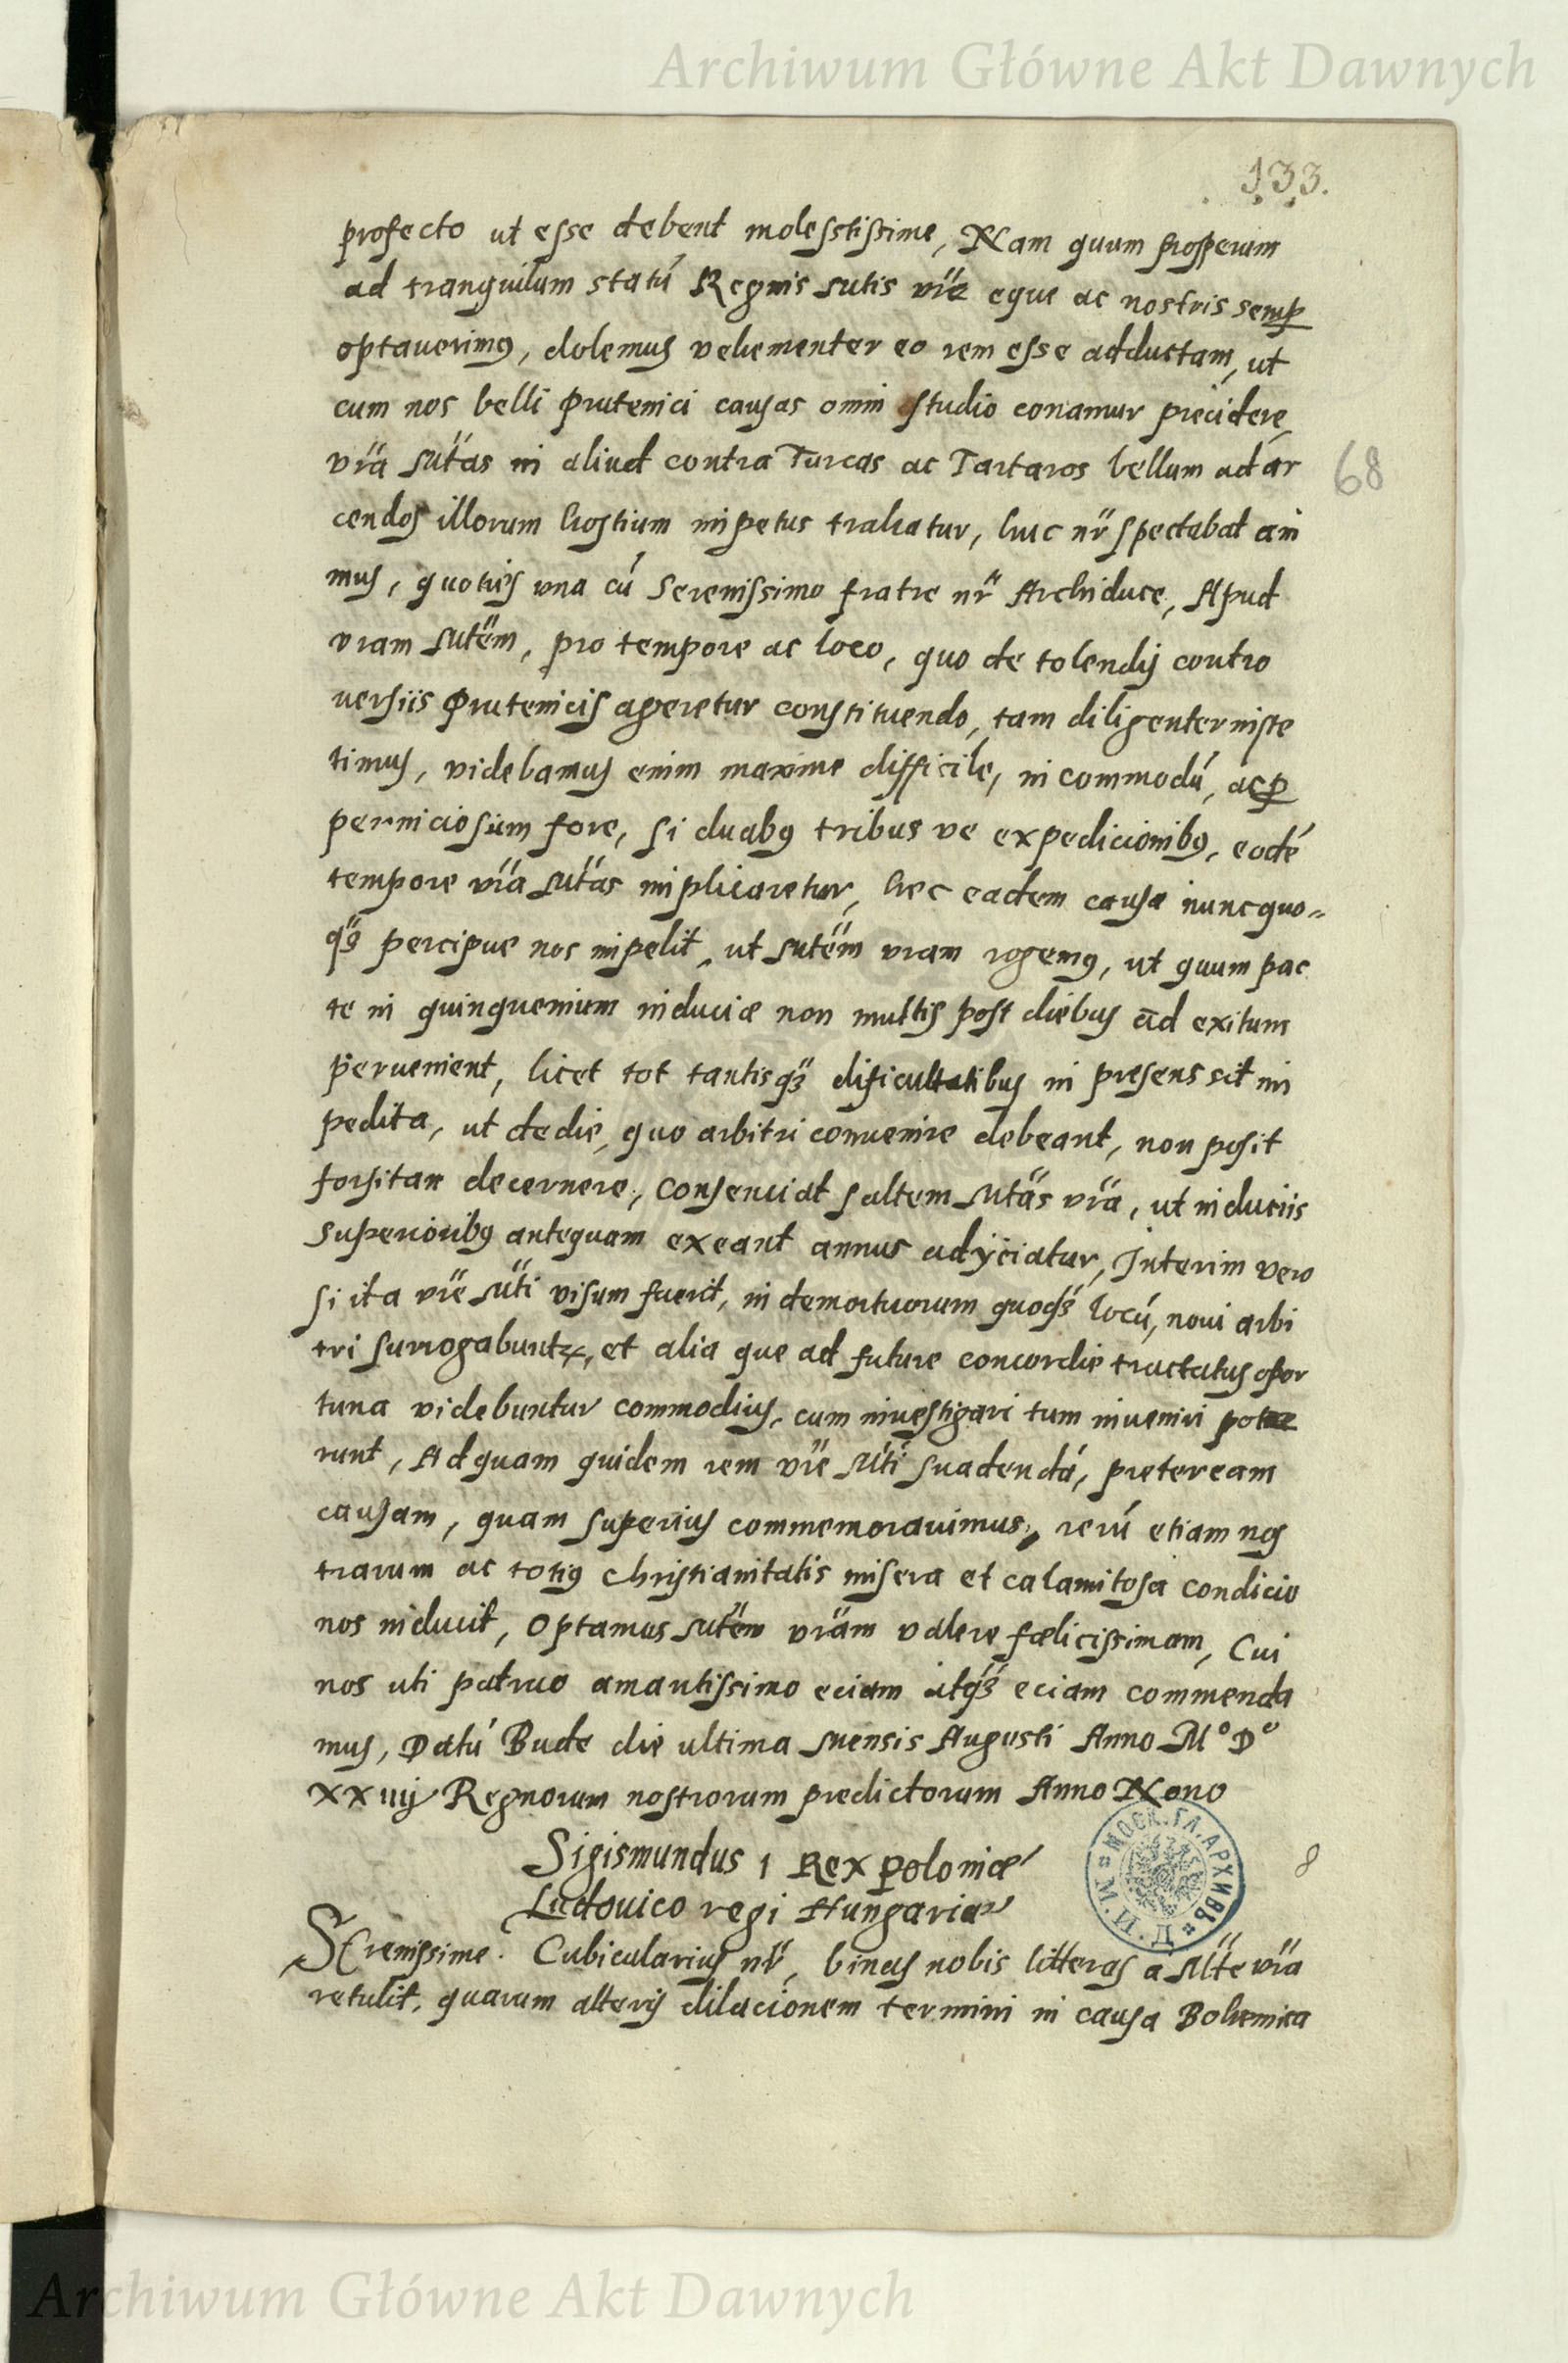 Archiwum Główne Akt Dawnych
133.
profecto ut esse debent molesstissime, Nam quum prosperum
ad tranquilum statú Regnis sutis vrẽ eque ac nostris semp
optauerimꝯ, dolemus vehementer eo rem esse adductam, ut
cum nos belli prutenici causas omni studio conamur precidere,
vrã sutãs in aliud contra Turcas ac Tartaros bellum ad ar
68
cendos illorum hostium impetus trahatur, huc nr̃ spectabat ani
mus, quoties una cú Serenissimo fratre nr̃ Archiduce, Apud
vram sutẽm, pro tempore ac loco, quo de tolendis contro
uersiis prutenicis ageretur constituendo, tam diligenter inste
timus, videbamus enim maxime difficile, incommodú, ac ꝑ
perniciosum fore, si duabꝯ tribus ve expedicionibꝯ, eodé
tempore vrã sutãs implicaretur, hec eadem causa nunc quo-
qꝫ percipue nos impelit, ut sutẽm vram rogemꝯ, ut quum pac
te in quinquenium induciæ non multis post diebus ad exitum
peruenient, licet tot tantisqꝫ dificultatibus in presens sit im
pedita, ut de die, quo arbitri conuenire debeant, non posit
forsitan decernere, consenciat saltem sutãs vrã, ut induciis
superioribꝯ antequam exeant annus adyciatur, Interim vero
si ita vrẽ sutĩ visum fuerit, in demortuorum quoqꝫ locú, noui arbi
tri surrogabuntꝛ, et alia que ad future concordie tractatus opor
tuna videbuntur commodius, cum inuestigari tum inueniri pote
runt, Ad quam quidem rem vrẽ sutĩ suadendá, preter eam
causam, quam superius commemorauimus, rerú etiam nos
trarum ac totiꝯ christianitatis misera et calamitosa condicio
nos inducit, Optamus sutẽm vrãm valere fælicissimam, Cui
nos uti patruo amantissimo eciam atqꝫ eciam commenda
mus, Datú Bude die ultima mensis Augusti Anno M° D°
XXiiij Regnorum nostrorum predictorum Anno Nono
Sigismundus 1 Rex Poloniæ
8
Ludouico regi Hungariæ
Serenissime. Cubicularius nr̃, binas nobis litteras a Mte vrã
retulit, quarum alteris dilacionem termini in causa Bohemica
МОСК. ГЛ. АРХИВЪ М. И. Д.
Archiwum Główne Akt Dawnych